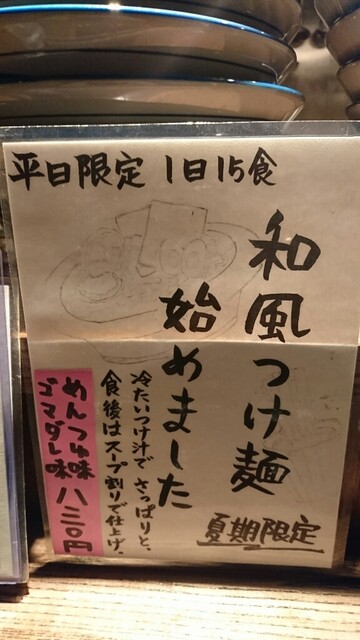 平日限定 1日15食
和風つけ麺
始めました
夏期限定
冷たいつけ汁で さっぱりと、
食後はスープ割りで仕上げ。
めんつゆ味
ゴマダレ味 八三〇円